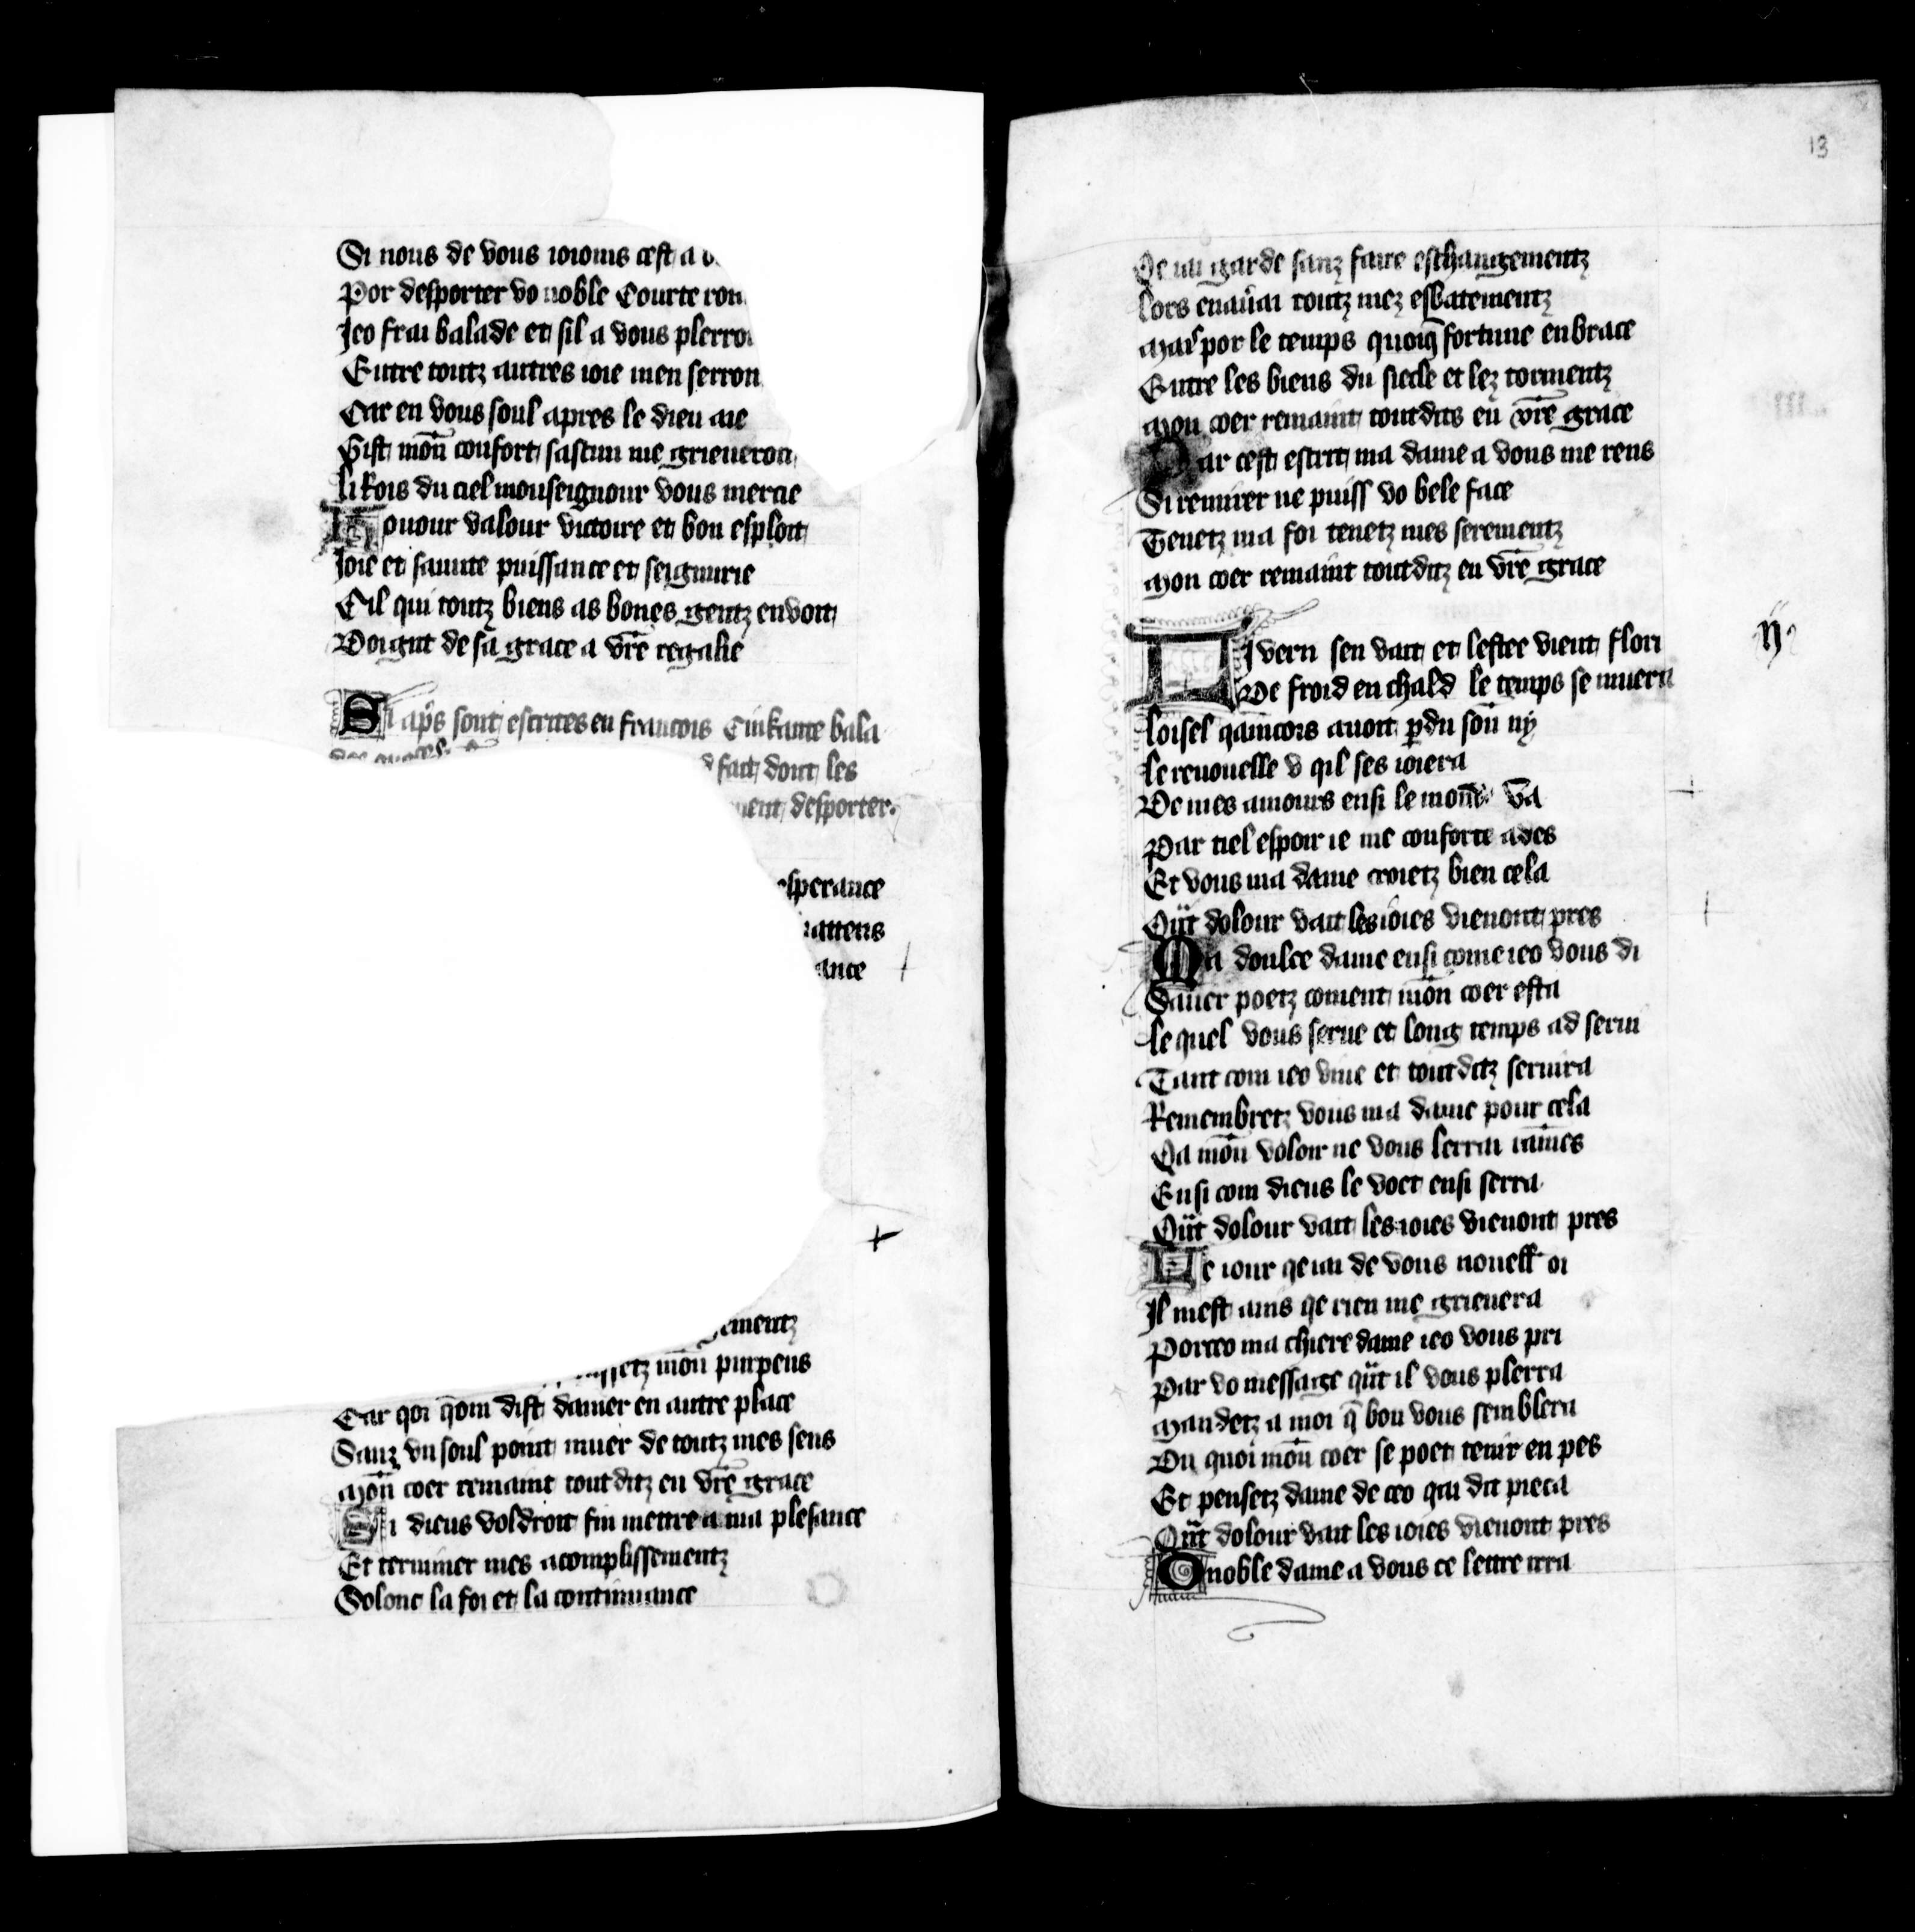 Si nous de vous ioioms cest a
Por desporter vo noble Courte
Jeo frai balade et sil a vous
Entre toutz autres ioie men serron
Car en vous soul apres le dieu aie
Gist mon̄ confort sascun me grieueroit
Li Rois du ciel monseignour vous mercie
Honour valour victoire et bon esploit
Joie et saunte puissance et seignurie
Cil qui toutz biens as bones gentz envoit
Doignt de sa grace a vr̄e regalie
Si ap̄s sont escrites en francois Cinkante bala
fait dont les
desporter.
esperance
attens
ance
ementz
mon̄ purpens
Car qoi qom dist damer en autre place
Sanz vn soul point muer de toutz mes sens
Mon̄ coer remaint toutditz en vr̄e grace
Si dieus voldroit fin mettre a ma plesance
Et terminer mes acomplissementz
Solonc la foi et la continuance
13
Qe iai garde sanz faire eschangementz
Lors enau̅ai toutz mez esbatementz
Mais por le temps quoiq̄ fortune enbrace
Entre les biens du siecle et lez tormentz
Mon coer remaint toutdits en vr̄e grace
Par cest escrit ma dame a vous me rens
Si remirer ne puiss vo bele face
Tenetz ma foi tenetz mes serementz
Mon coer remaint toutditz en vr̄e grace
ij
Livern sen vait et lestee vient flori
De froid en chald le temps se muera
Loisel qaincois auoit ꝑdu son̄ ny
Le renouelle v qil ses ioiera
De mes amours ensi le mond̄ va
Par tiel espoir ie me conforte ades
Et vous ma dame croietz bien cela
Qūt dolour vait les ioies vienont pres
Ma doulce dame ensi come ieo vous di
Sauer poetz coment mon̄ coer esta
Le quel vous serue et long temps ad serui
Tant com ieo viue et toutditz seruira
Remembretz vous ma dame pour cela
Qa mon̄ voloir ne vous lerrai iames
Ensi com dieus le voet ensi serra
Qūt dolour vait les ioies vienont pres
Le iour qe iai de vous nouell oi
Il mest auis qe rien me grieuera
Porceo ma chiere dame ieo vous pri
Par vo message qūt il vous plerra
Mandetz a moi q̄ bon vous semblera
Du quoi mon̄ coer se poet tenir en pes
Et pensetz dame de ceo qai dit pieca
Qūt dolour vait les ioies vienont pres
O noble dame a vous ce lettre irra